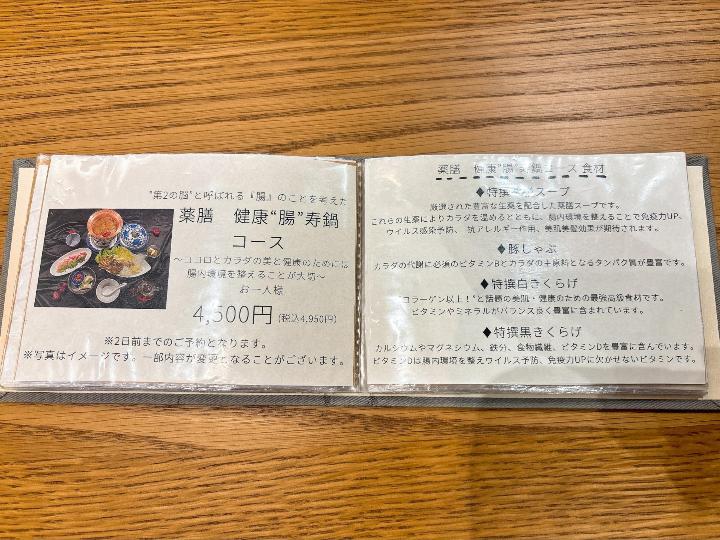 "第2の脳"と呼ばれる『腸』のことを考えた
薬膳 健康"腸"寿鍋
コース
～ココロとカラダの美と健康のためには
腸内環境を整えることが大切～
お一人様
4,500円(税込4,950円)
※2日前までのご予約となります。
※写真はイメージです。一部内容が変更となることがございます。
薬膳 健康"腸"寿鍋コース 食材
◆特撰 スープ
厳選された豊富な生薬を配合した薬膳スープです。
これらの生薬によりカラダを温めるとともに、腸内環境を整えることで免疫力UP、
ウイルス感染予防、抗アレルギー作用、美肌美髪効果が期待されます。
◆豚しゃぶ
カラダの代謝に必須のビタミンBとカラダの主原料となるタンパク質が豊富です。
◆特撰白きくらげ
"コラーゲン以上!"と話題の美肌・健康のための最強高級食材です。
ビタミンやミネラルがバランス良く豊富に含まれています。
◆特撰黒きくらげ
カルシウムやマグネシウム、鉄分、食物繊維、ビタミンDを豊富に含んでいます。
ビタミンDは腸内環境を整えウイルス予防、免疫力UPに欠かせないビタミンです。